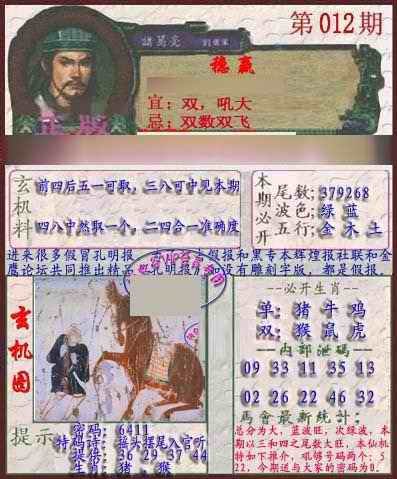 第012期
諸葛亮
稳赢
宜：双，吼大
忌：双数双飞
正版
玄机料
前四后五一可取，三八可中见本期
四八中然取一个，二四合一准确度
本期必开
尾数：379268
波色：绿 蓝
五行：金 木 土
进来很多假冒孔明报
假报和黑专本辉煌报社联和金
鹰论坛共同推出精品
孔明报
没有雕刻字版，都是假报。
玄机图
--必开生肖--
单：猪 牛 鸡
双：猴 鼠 虎
--内部泄码--
09 33 11 35 13
02 26 22 46 32
馬會最新统计：
总分为大，蓝波旺，次绿波，本
期以三和四之尾数大旺，本仙机
特如下推介，吼够号码两个：5
22，今期送与大家的密码为0.
提示
密码：6411
特码诗：摇头摆尾入官听
提倍：36 29 37 44
生肖：猪．猴